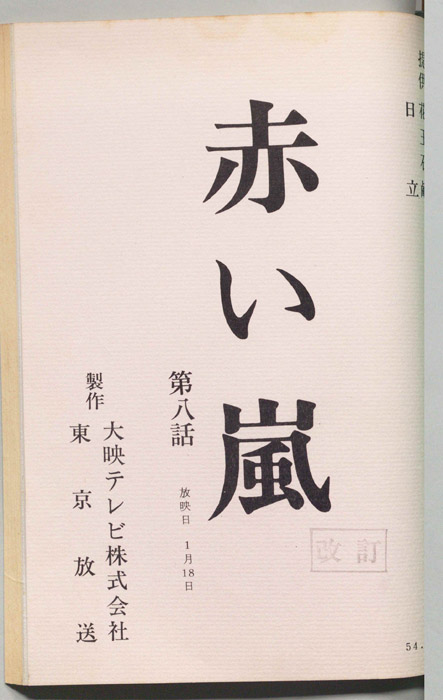 提供 花王石鹸
日立
赤い嵐
第八話
放映日 1月18日
製作
大映テレビ株式会社
東京放送
改訂
54.